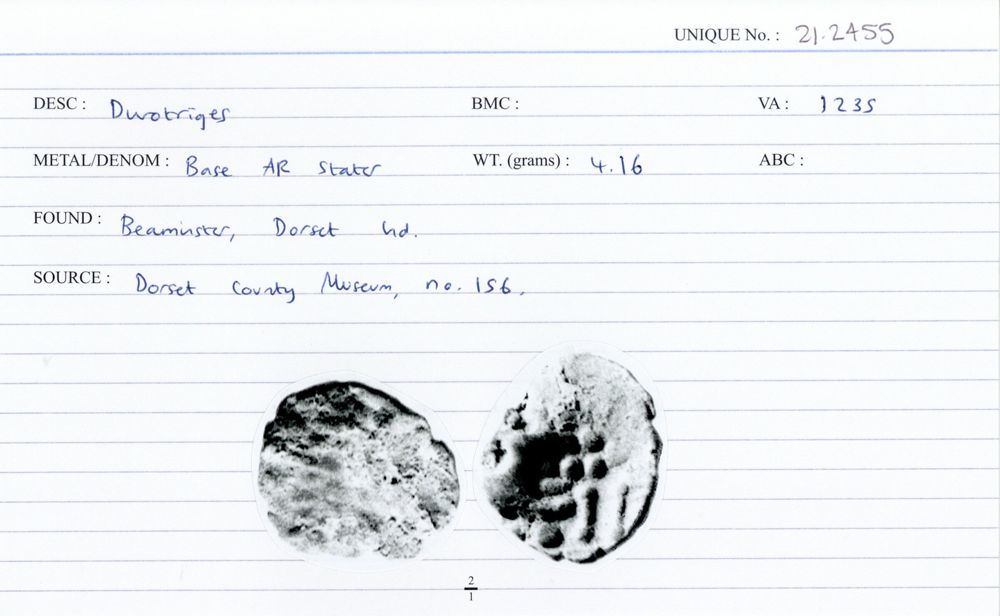 UNIQUE No. : 21.2455
DESC : Durotriges BMC : VA : 1235
METAL/DENOM : Base AR Stater WT. (grams) : 4.16 ABC :
FOUND : Beaminster, Dorset hd.
SOURCE : Dorset County Museum, no. 156.
2
1